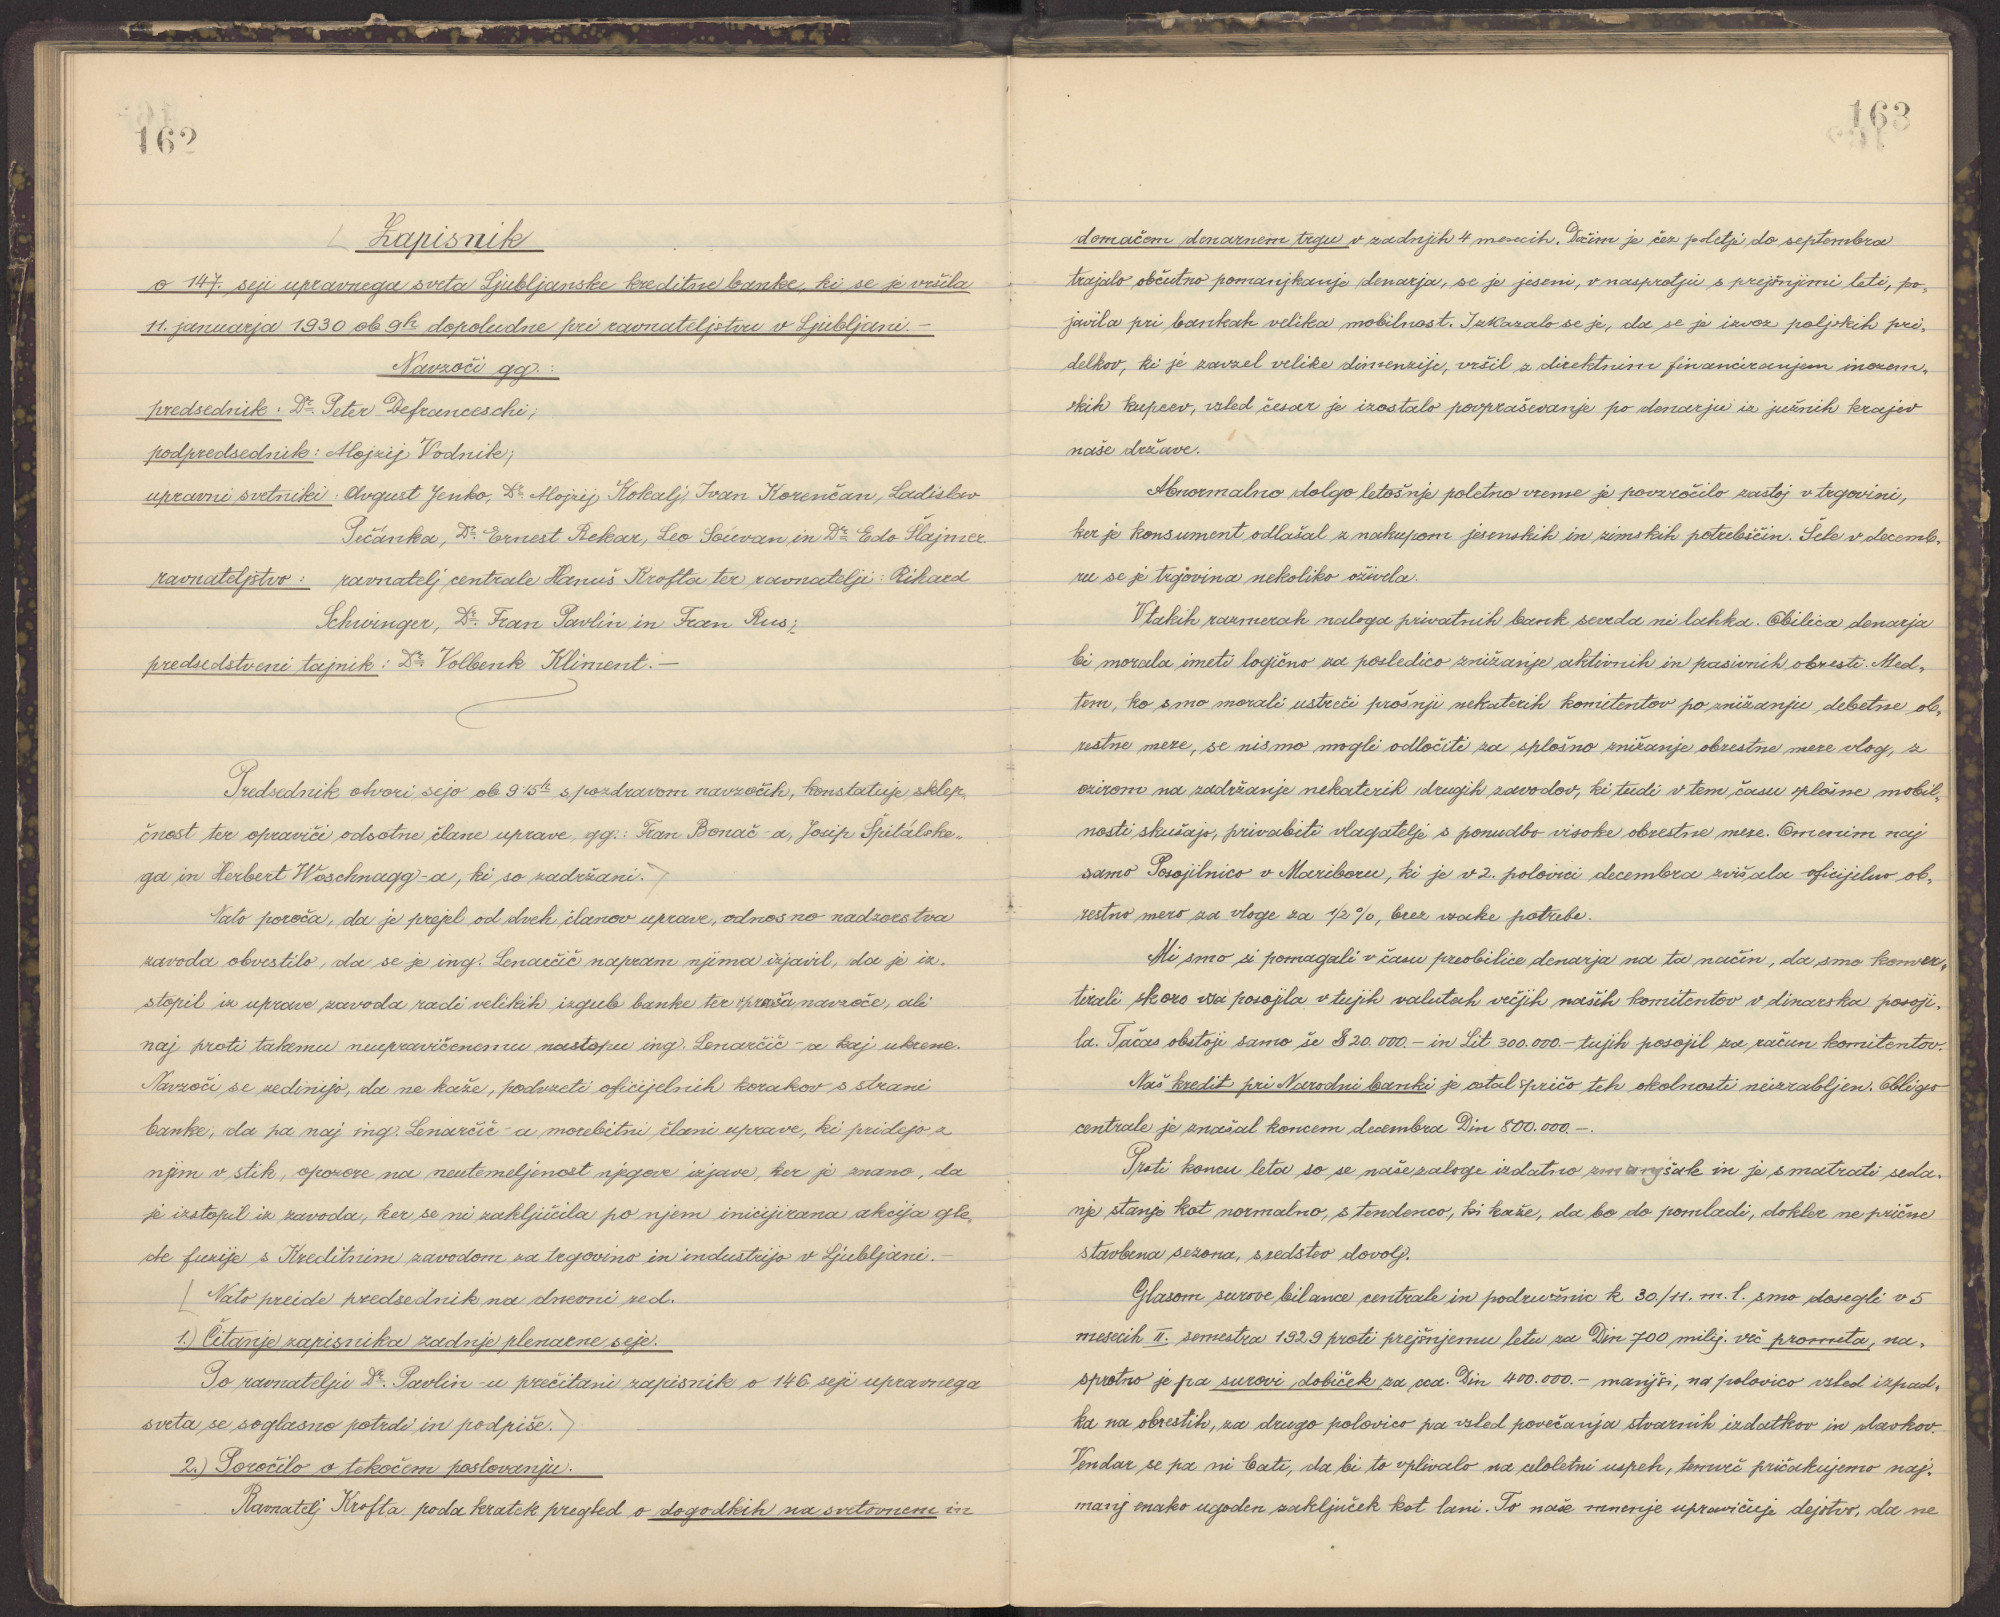 162
Zapisnik
o 147. seji upravnega sveta Ljubljanske kreditne banke, ki se je vršila
11. januarja 1930 ob 9h dopoludne pri ravnateljstvu v Ljubljani.-
Navzoči gg.:
predsednik: Dr. Peter Defranceschi;
podpredsednik: Alojzij Vodnik;
upravni svetniki: Avgust Jenko, Dr. Alojzij Kokalj, Ivan Korenčan, Ladislav
Pečánka, Dr. Ernest Rekar, Leo Souvan in Dr. Edo Šlajmer.
ravnateljstvo: ravnatelj centrale Hanuš Krofta ter ravnatelji: Rikard
Schwinger, Dr. Fran Pavlin in Fran Rus;
predsedstveni tajnik: Dr. Volbenk Kliment.-
Predsednik otvori sejo ob 9 15h s pozdravom navzočih, konstatuje sklep-
čnost ter opraviči odsotne člane uprave, gg.: Fran Bonač-a, Josip Špitálske-
ga in Herbert Woschnagg-a, ki so zadržani.
Nato poroča, da je prejel od dveh članov uprave, odnosno nadzorstva
zavoda obvestilo, da se je ing. Lenarčič napram njima izjavil, da je iz-
stopil iz uprave zavoda radi velikih izgub banke ter vpraša navzoče, ali
naj proti takemu neupravičenemu nastopu ing. Lenarčič-a kaj ukrene.
Navzoči se zedinijo, da ne kaže, podvzeti oficijelnih korakov s strani
banke, da pa naj ing. Lenarčič-a morebitni člani uprave, ki pridejo z
njim v stik, opozore na neutemeljenost njegove izjave, ker je znano, da
je izstopil iz zavoda, ker se ni zaključila po njem inicijirana akcija gle-
de fuzije s Kreditnim zavodom za trgovino in industrijo v Ljubljani.-
Nato preide predsednik na dnevni red.
1.) Čitanje zapisnika zadnje plenarne seje.
Po ravnatelju Dr. Pavlin-u prečitani zapisnik o 146 seji upravnega
sveta se soglasno potrdi in podpiše.
2.) Poročilo o tekočem poslovanju.
Ravnatelj Krofta poda kratek pregled o dogodkih na svetovnem in
163
domačem denarnem trgu v zadnjih 4 mesecih. Dočim je čez poletje do septembra
trajalo občutno pomanjkanje denarja, se je jeseni, v nasprotju s prejšnjimi leti, po-
javila pri bankah velika mobilnost. Izkazalo se je, da se je izvoz poljskih pri-
delkov, ki je zavzel velike dimenzije, vršil z direktnim financiranjem inozem-
skih kupcev, vsled česar je izostalo povpraševanje po denarju iz južnih krajev
naše države.
Abnormalno dolgo letošnje poletno vreme je povzročilo zastoj v trgovini,
ker je konsument odlašal z nakupom jesenskih in zimskih potrebščin. Šele v decemb-
ru se je trgovina nekoliko oživela.
V takih razmerah naloga privatnih bank seveda ni lahka. Obilica denarja
bi morala imeti logično za posledico znižanje aktivnih in pasivnih obresti. Med-
tem, ko smo morali ustreči prošnji nekaterih komitentov po znižanju debetne ob-
restne mere, se nismo mogli odločiti za splošno znižanje obrestne mere vlog, z
ozirom na zadržanje nekaterih drugih zavodov, ki tudi v tem času splošne mobil-
nosti skušajo, privabiti vlagatelje s ponudbo visoke obrestne mere. Omenim naj
samo Posojilnico v Mariboru, ki je v 2. polovici decembra zvišala oficijelno ob-
restno mero za vloge za 1/2%, brez vsake potrebe.
Mi smo si pomagali v času preobilice denarja na ta način, da smo konver-
tirali skoro vsa posojila v tujih valutah večjih naših komitentov v dinarska posoji-
la. Tačas obstoji samo še $ 20.000.- in Lit 300.000.- tujih posojil za račun komitentov.
Naš kredit pri Narodni banki je ostal spričo teh okolnosti neizrabljen. Obligo
centrale je znašal koncem decembra Din 800.000.-.
Proti koncu leta so se naše zaloge izdatno zmanjšale in je smatrati seda-
nje stanje kot normalno, s tendenco, ki kaže, da bo do pomladi, dokler ne prične
stavbena sezona, sredstev dovolj.
Glasom surove bilance centrale in podružnic k 30./11. m. l. smo dosegli v 5
mesecih II. semestra 1929 proti prejšnjemu letu za Din 700 milij. več prometa, na-
sprotno je pa surovi dobiček za cca. Din 400.000.- manjši, na polovico vsled izpad-
ka na obrestih, za drugo polovico pa vsled povečanja stvarnih izdatkov in davkov.
Vendar se pa ni bati, da bi to vplivalo na celoletni uspeh, temveč pričakujemo naj-
manj enako ugoden zaključek kot lani. To naše mnenje upravičuje dejstvo, da ne